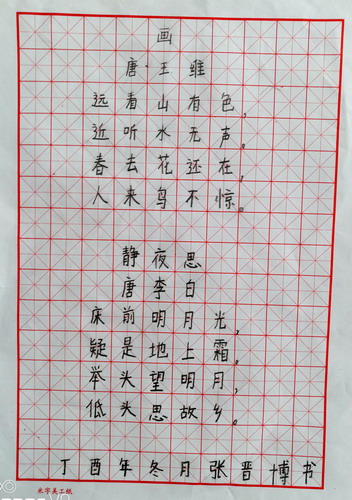 画
唐·王维
远看山有色，
近听水无声。
春去花还在，
人来鸟不惊。
静夜思
唐李白
床前明月光，
疑是地上霜。
举头望明月，
低头思故乡。
丁酉年冬月张晋博书
米字美工纸